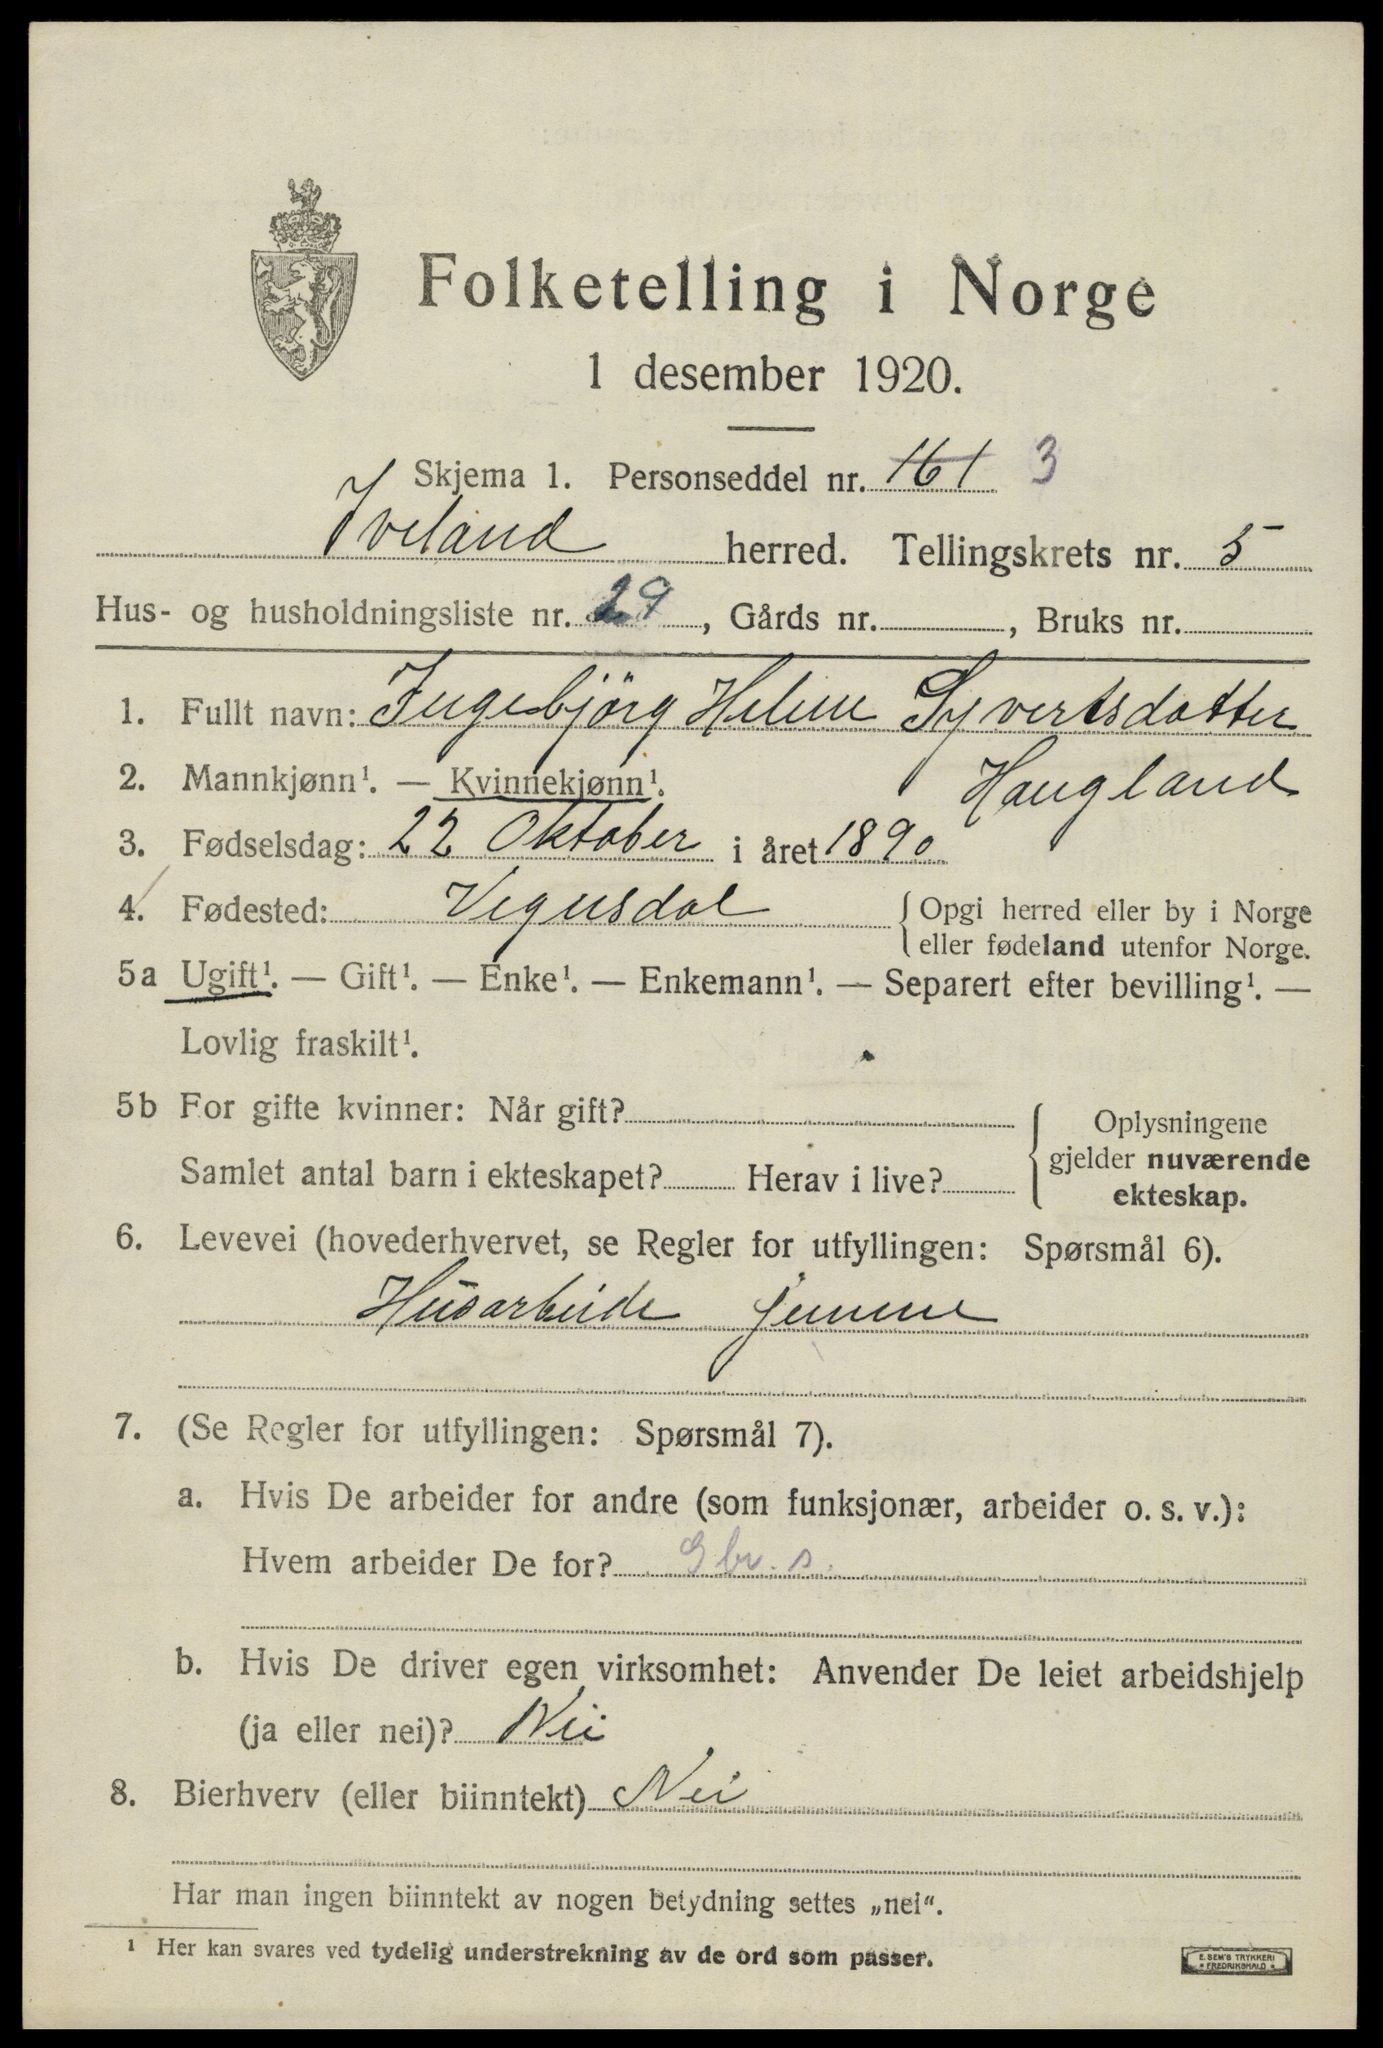 Folketelling i Norge
1 desember 1920.
Skjema 1. Personseddel nr. 161 3
Iveland herred. Tellingskrets nr. 5
Hus- og husholdningsliste nr. 29, Gårds nr. , Bruks nr.
1. Fullt navn: Ingebjörg Helene Syvertsdatter
Haugland
2. Mannkjønn¹. — Kvinnekjønn¹.
3. Fødselsdag: 22 Oktober i året 1890
4. Fødested: Vegusdal { Opgi herred eller by i Norge
eller fødeland utenfor Norge.
5a Ugift¹. — Gift¹. — Enke¹. — Enkemann¹. — Separert efter bevilling¹. —
Lovlig fraskilt¹.
5b For gifte kvinner: Når gift?
Samlet antal barn i ekteskapet? Herav i live?
{ Oplysningene
gjelder nuværende
ekteskap.
6. Levevei (hovederhvervet, se Regler for utfyllingen: Spørsmål 6).
Husarbeide jemme
7. (Se Regler for utfyllingen: Spørsmål 7).
a. Hvis De arbeider for andre (som funksjonær, arbeider o. s. v.):
Hvem arbeider De for? Gbr. s.
b. Hvis De driver egen virksomhet: Anvender De leiet arbeidshjelp
(ja eller nei)? Nei
8. Bierhverv (eller biinntekt) Nei
Har man ingen biinntekt av nogen betydning settes „nei“.
¹ Her kan svares ved tydelig understrekning av de ord som passer.
E. SEM'S TRYKKERI
FREDRIKSHALD